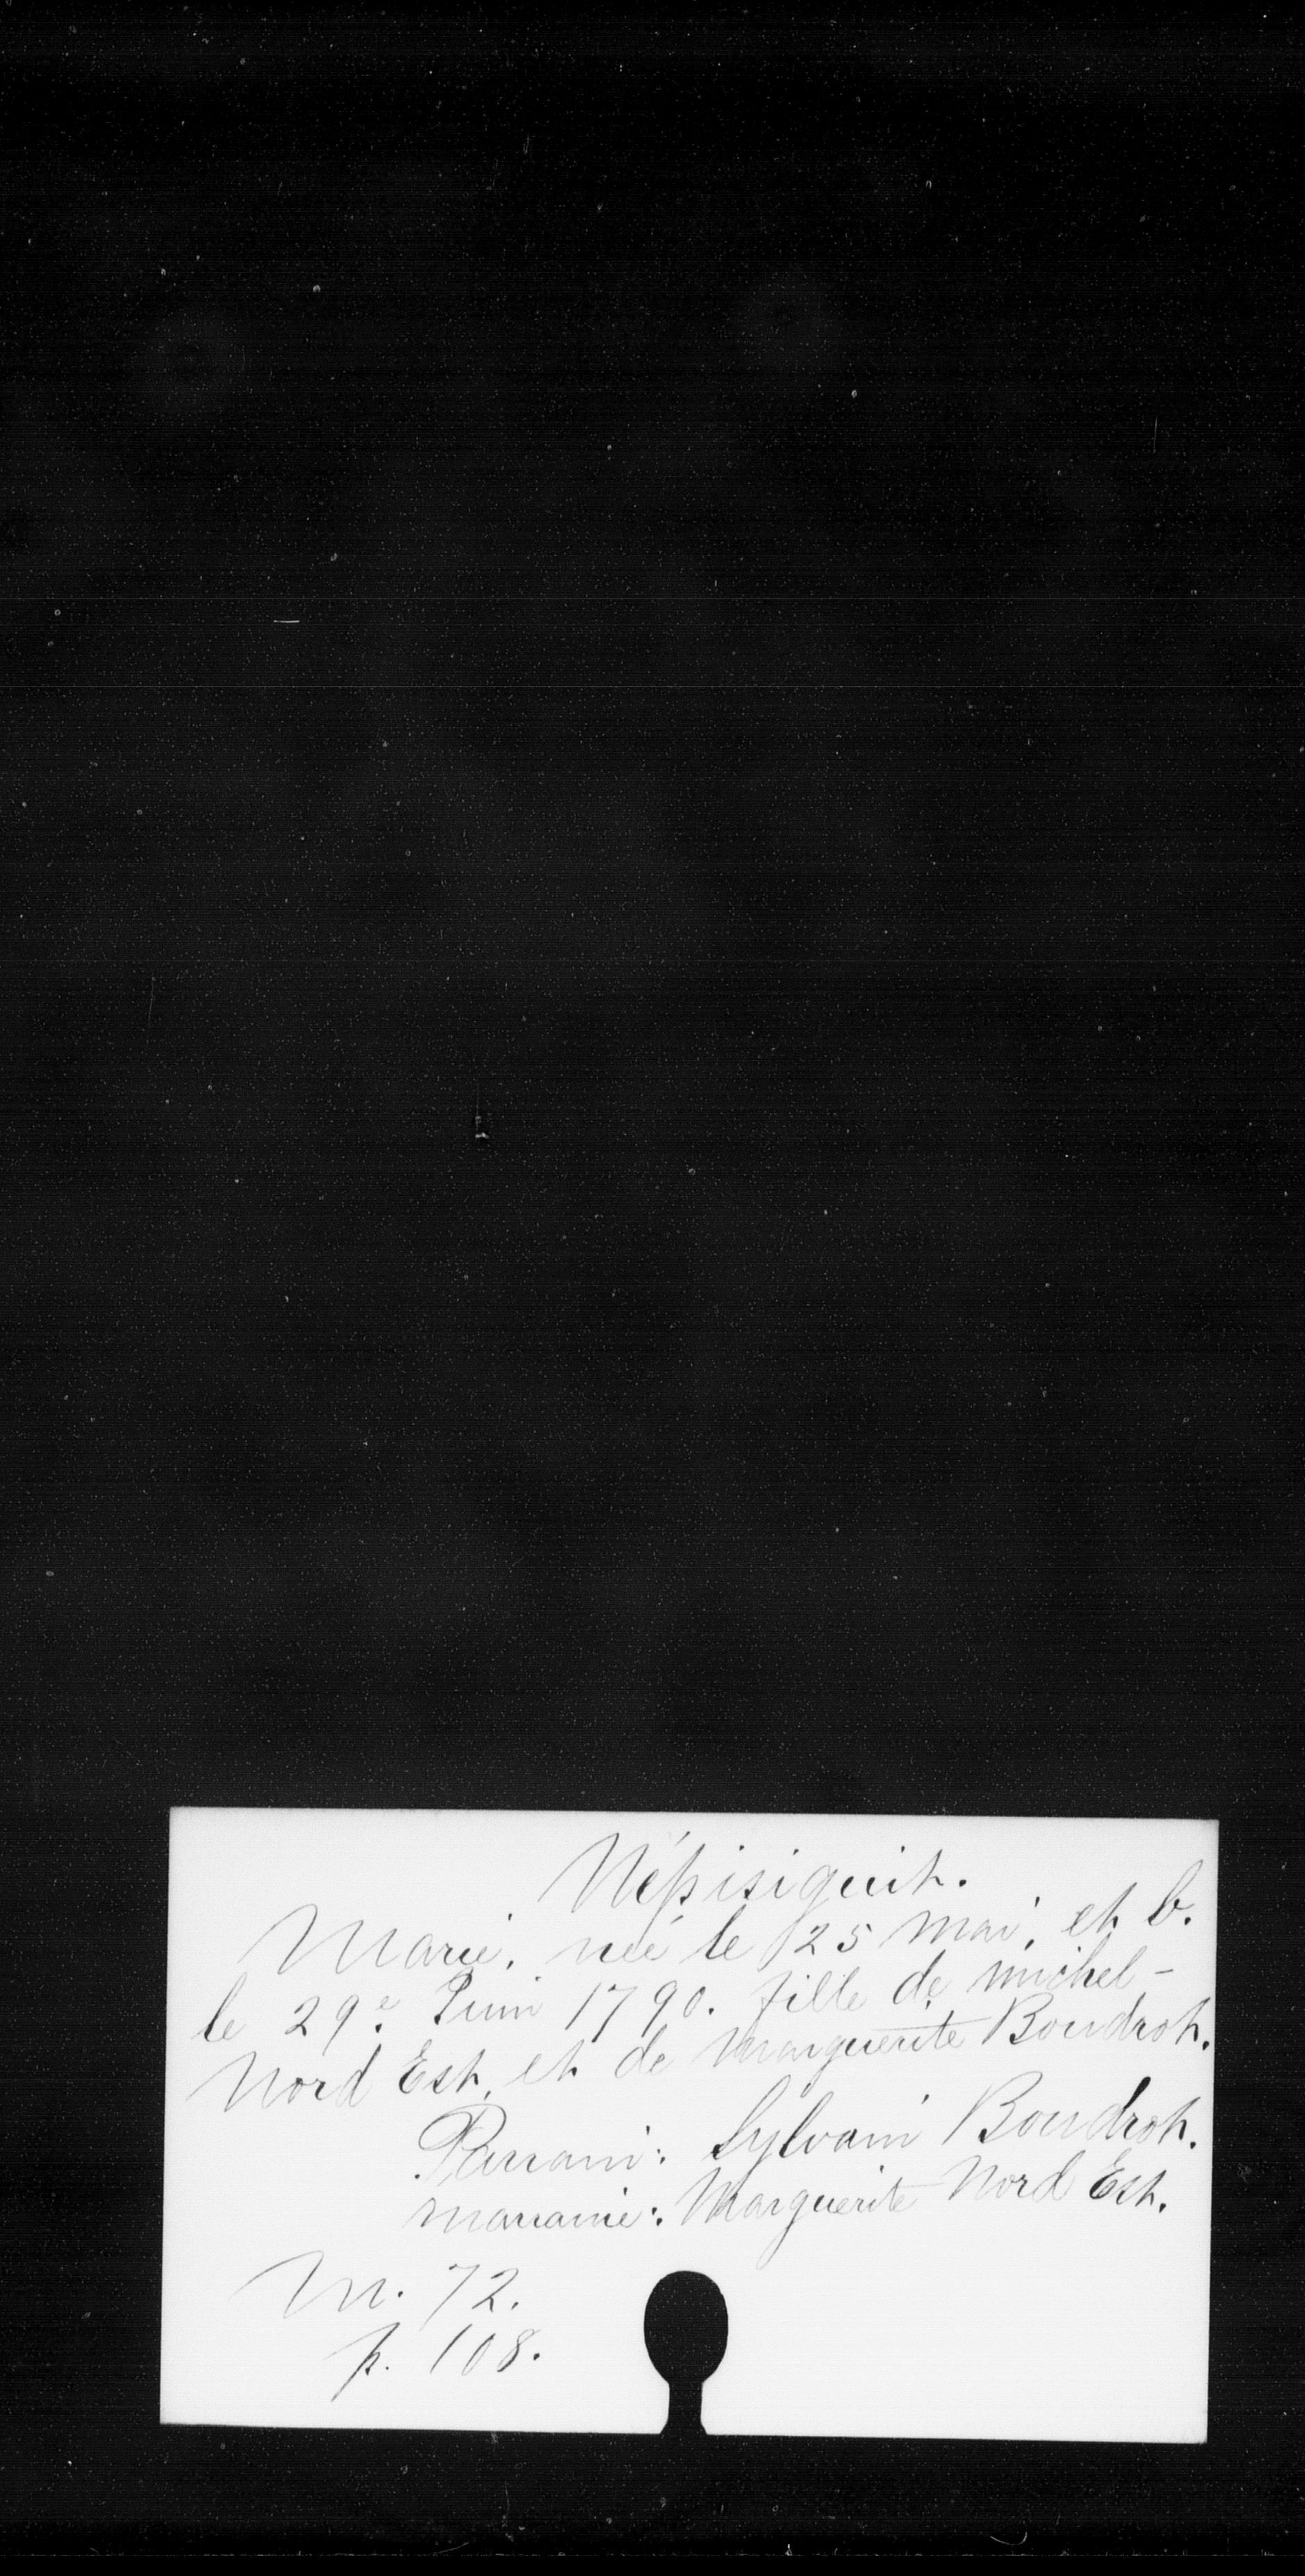 Népisiguit.
Marie, née le 25 mai, et b.
le 29e Juin 1790. fille de Michel-
Nord Est, et de Marguerite Boudrot.
Parrain: Sylvain Boudrot.
Marraine: Marguerite Nord Est.
M. 72.
p. 108.